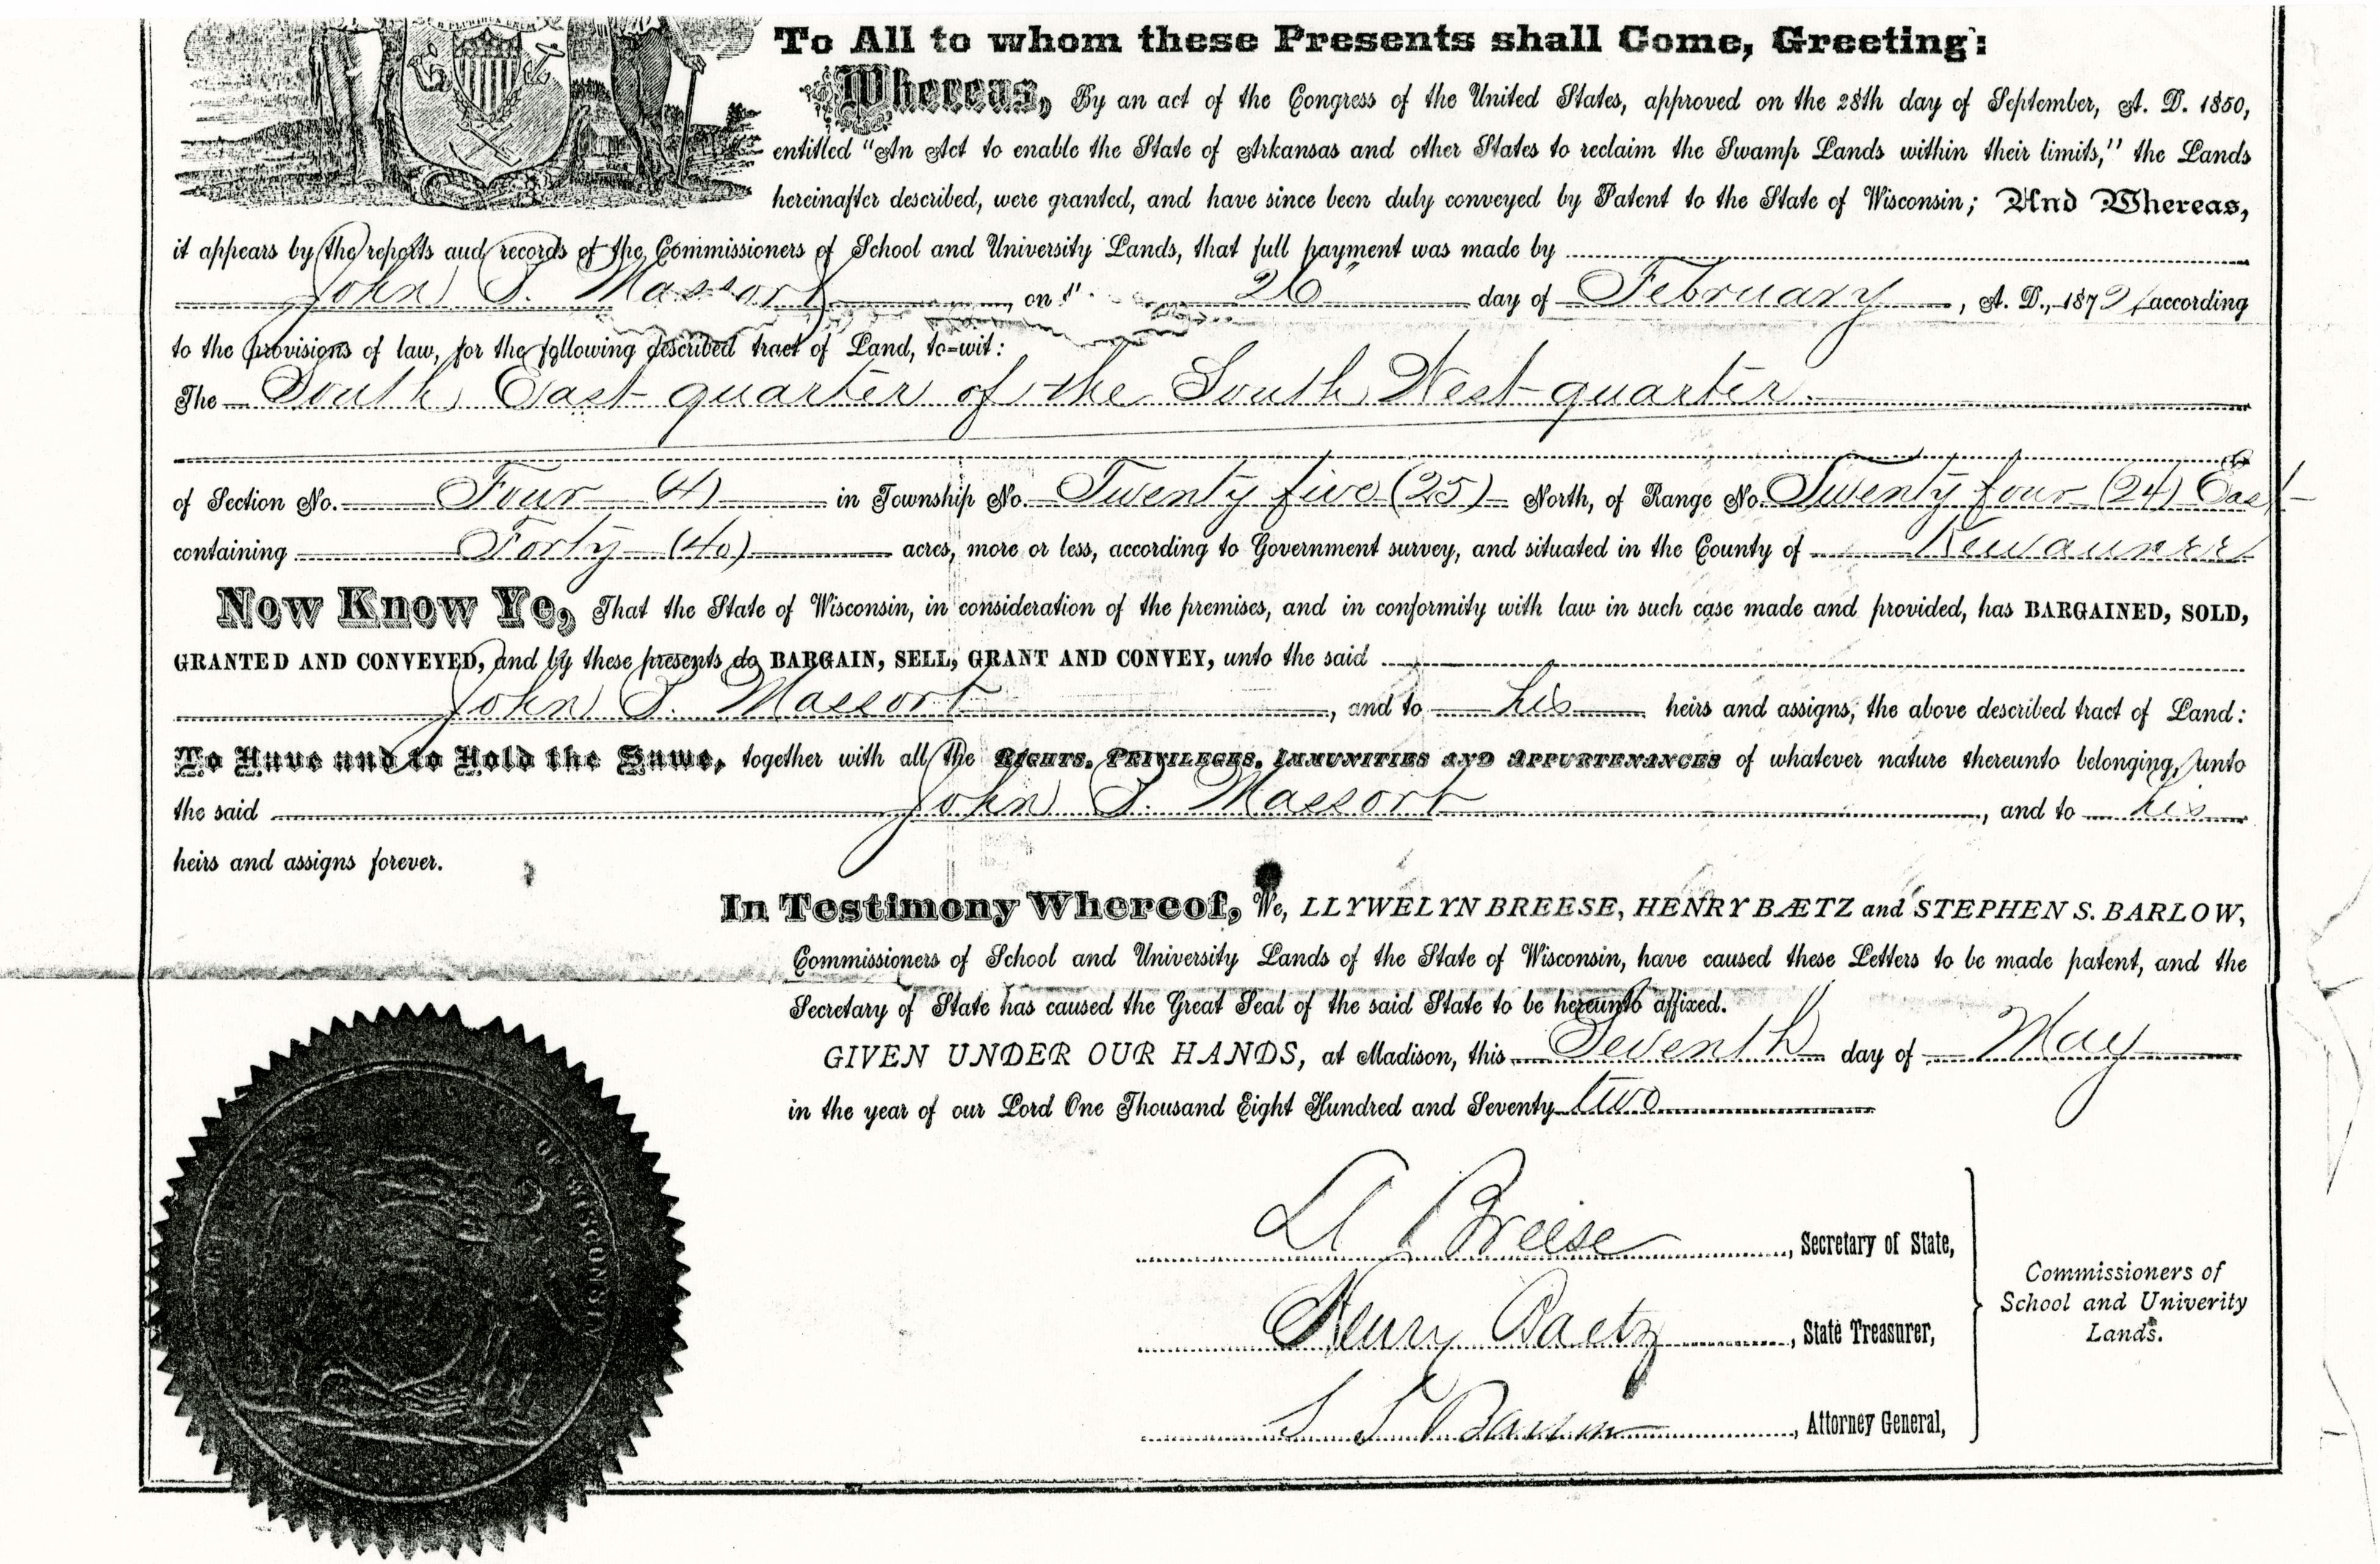 To All to whom these Presents shall Come, Greeting:
Whereas, By an act of the Congress of the United States, approved on the 28th day of September, A. D. 1850,
entitled "An Act to enable the State of Arkansas and other States to reclaim the Swamp Lands within their limits," the Lands
hereinafter described, were granted, and have since been duly conveyed by Patent to the State of Wisconsin; And Whereas,
it appears by the reports and records of the Commissioners of School and University Lands, that full payment was made by
John S. Massort on 26" day of February, A. D., 1872 according
to the provisions of law, for the following described tract of Land, to=wit:
The South East quarter of the South West quarter
of Section No. Four (4) in Township No. Twenty five (25) North, of Range No. Twenty four (24) East
containing Forty (40) acres, more or less, according to Government survey, and situated in the County of Kewaunee
Now Know Ye, That the State of Wisconsin, in consideration of the premises, and in conformity with law in such case made and provided, has BARGAINED, SOLD,
GRANTED AND CONVEYED, and by these presents do BARGAIN, SELL, GRANT AND CONVEY, unto the said
John S. Massort, and to his heirs and assigns, the above described tract of Land:
To Have and to Hold the Same, together with all the RIGHTS, PRIVILEGES, IMMUNITIES AND APPURTENANCES of whatever nature thereunto belonging, unto
the said John S. Massort, and to his
heirs and assigns forever.
In Testimony Whereof, We, LLYWELYN BREESE, HENRY BÆTZ and STEPHEN S. BARLOW,
Commissioners of School and University Lands of the State of Wisconsin, have caused these Letters to be made patent, and the
Secretary of State has caused the Great Seal of the said State to be hereunto affixed.
GIVEN UNDER OUR HANDS, at Madison, this Seventh day of May
in the year of our Lord One Thousand Eight Hundred and Seventy two
Ll Breese, Secretary of State,
Henry Baetz, State Treasurer,
S S Barlow, Attorney General,
Commissioners of
School and Univerity
Lands.
OF WISCONSIN